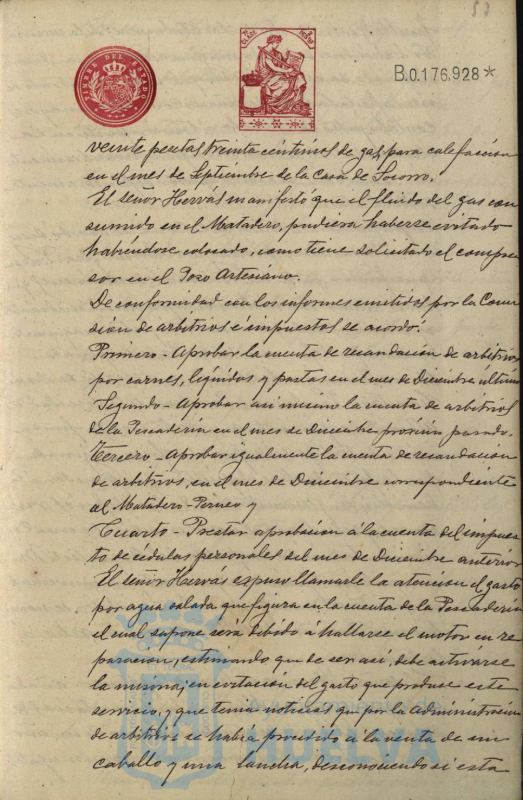 57
TIMBRE DEL ESTADO
B.0.176.928*
veinte pesetas treinta céntimos de gas, para calefacción
en el mes de Septiembre de la Casa de Socorro.
El señor Hervás manifestó que el fluido del gas con
sumido en el Matadero, pudiera haberse evitado
habiéndose colocado, como tiene solicitado el compre
sor en el Pozo Artesiano.
De conformidad con los informes emitidos por la Comi
sión de arbitrios é impuestos se acordó:
Primero - Aprobar la cuenta de recaudación de arbitrios
por carnes, líquidos y pastas en el mes de Diciembre último
Segundo - Aprobar asi mismo la cuenta de arbitrios
de la Pescadería en el mes de Diciembre próximo pasado.
Tercero - Aprobar igualmente la cuenta de recaudación
de arbitrios, en el mes de Diciembre correspondiente
al Matadero - Perneo y
Cuarto - Prestar aprobación á la cuenta del impues
to de cédulas personales del mes de Diciembre anterior
El señor Hervás expuso llamarle la atención el gasto
por agua salada que figura en la cuenta de la Pescadería
el cual supone será debido á hallarse el motor en re
paración, estimando que de ser así, debe activarse
la misma, en evitación del gasto que produce este
servicio, y que tenía noticias que por la Administración
de arbitrios se había procedido á la venta de un
caballo y una lancha, desconociendo si esta
HUELVA